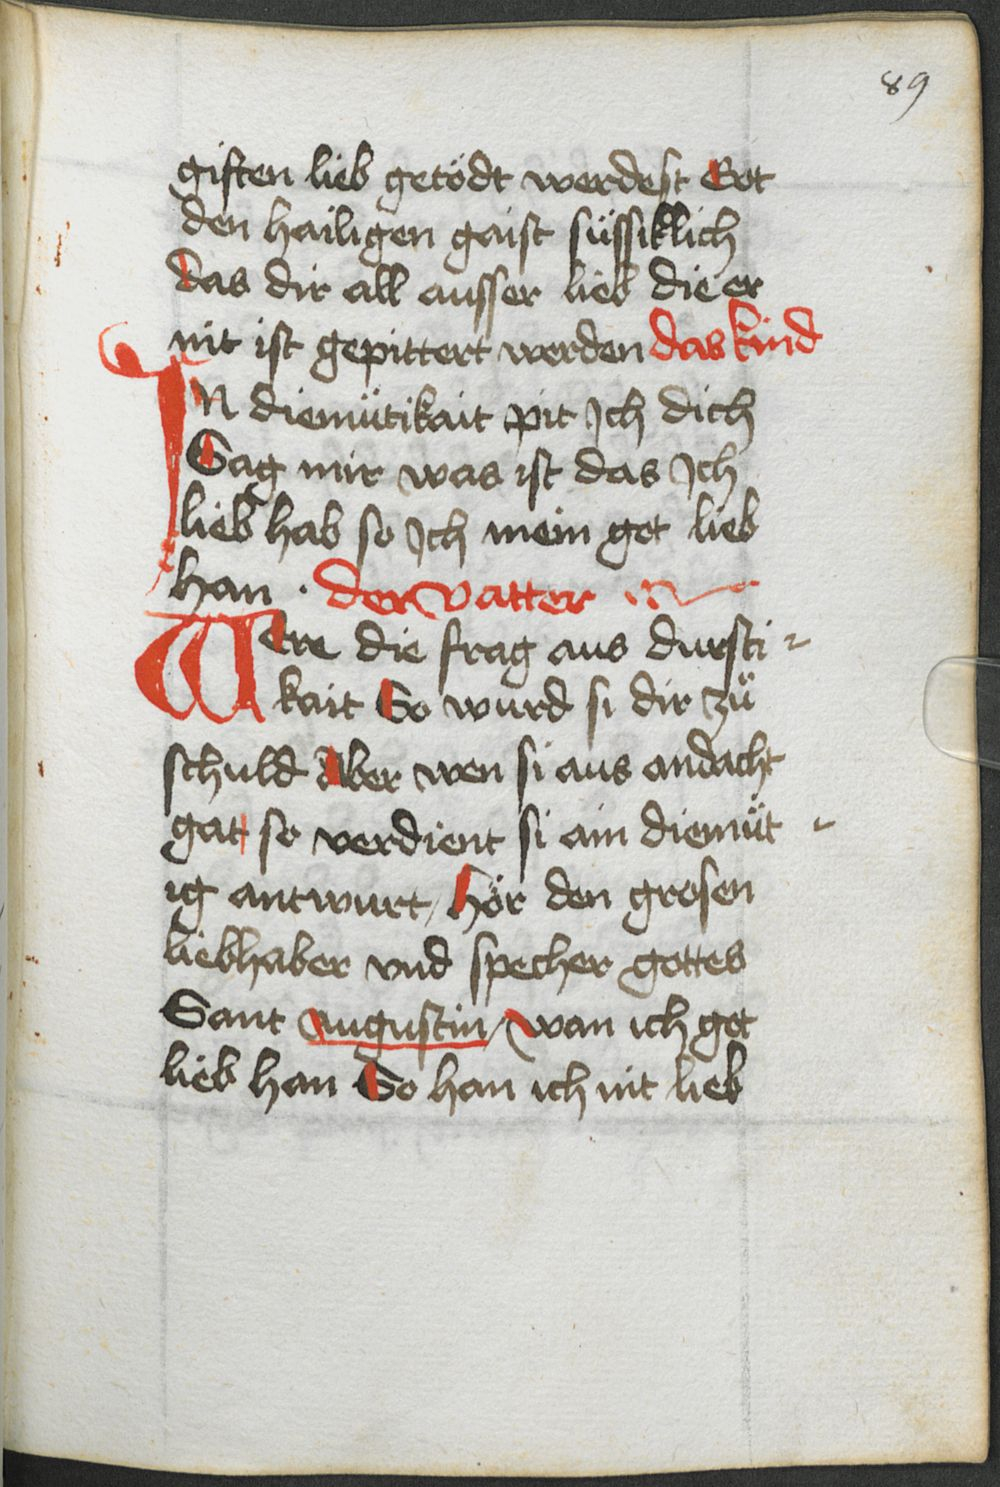 89
giften lieb getödt werdest Bit
den hailigen gaist süssiklich
das dir all ausser lieb die er
nit ist gepittert werden das kind
In diemütikait pit Ich dich
Sag mir was ist das Ich
lieb hab so Ich mein got lieb
han . der vatter
Were die frag aus dursti-
kait So wurd si dir zü
schuld Aber wen si aus andacht
gat so verdient si ain diemüt-
ig antwurt / hör den grosen
liebhaber vnd specher gottes
Sant augustin / wan ich got
lieb han So han ich nit lieb